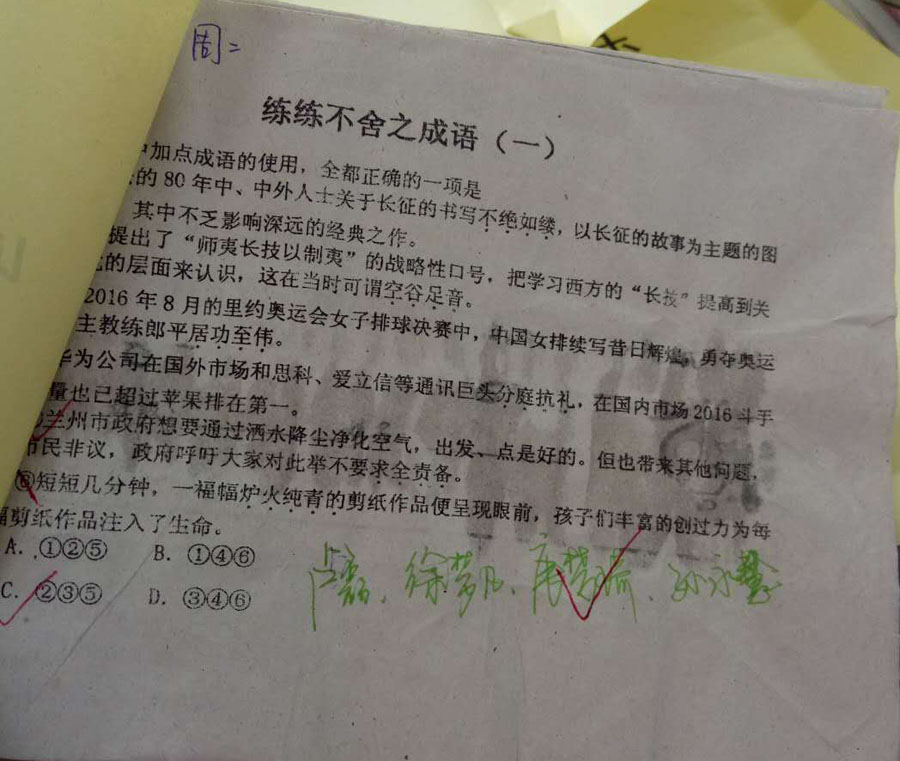 周二
练练不舍之成语（一）
加点成语的使用，全都正确的一项是
的 80 年中、中外人士关于长征的书写不绝如缕，以长征的故事为主题的图
其中不乏影响深远的经典之作。
提出了“师夷长技以制夷”的战略性口号，把学习西方的“长技”提高到关
的层面来认识，这在当时可谓空谷足音。
2016 年 8 月的里约奥运会女子排球决赛中，中国女排续写昔日辉煌，勇夺奥运
主教练郎平居功至伟。
华为公司在国外市场和思科、爱立信等通讯巨头分庭抗礼，在国内市场 2016 斗手
量也已超过苹果排在第一。
兰州市政府想要通过洒水降尘净化空气，出发、点是好的。但也带来其他问题，
市民非议，政府呼吁大家对此举不要求全责备。
⑥短短几分钟，一福幅炉火纯青的剪纸作品便呈现眼前，孩子们丰富的创过力为每
幅剪纸作品注入了生命。
A. ①②⑤ B. ①④⑥
C. ②③⑤ D. ③④⑥